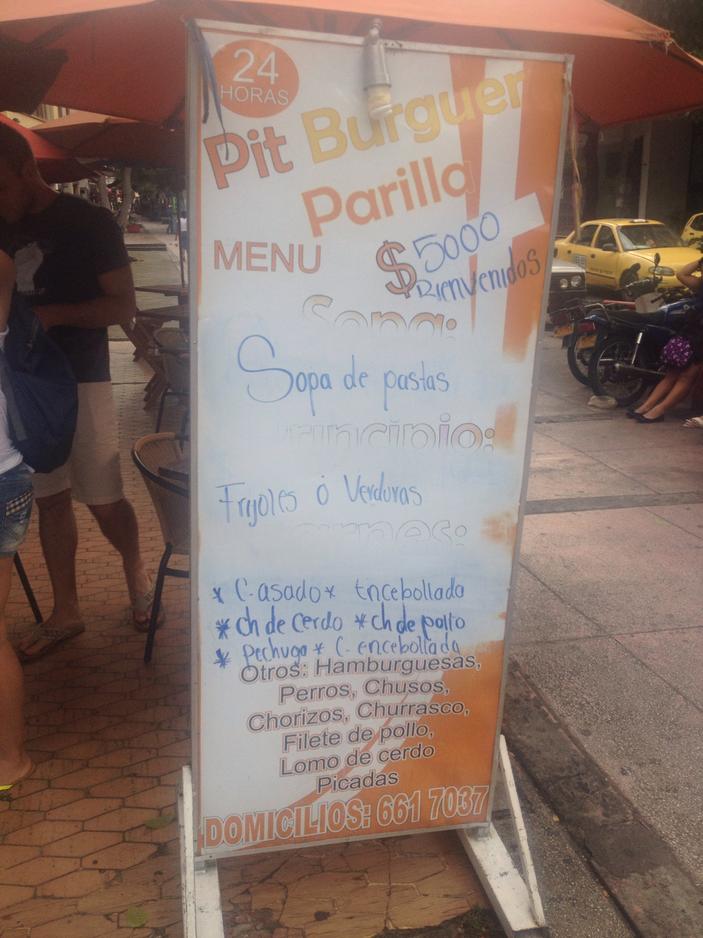 24
HORAS
Pit Burguer
Parilla
MENU
$5000
Bienvenidos
Sopa:
Sopa de pastas
Principio:
Frijoles ó Verduras
Carnes:
* C. asado * Encebollada
* ch de Cerdo * ch de pollo
* Pechuga * C. encebollada
Otros: Hamburguesas,
Perros, Chusos,
Chorizos, Churrasco,
Filete de pollo,
Lomo de cerdo
Picadas
DOMICILIOS: 661 7037